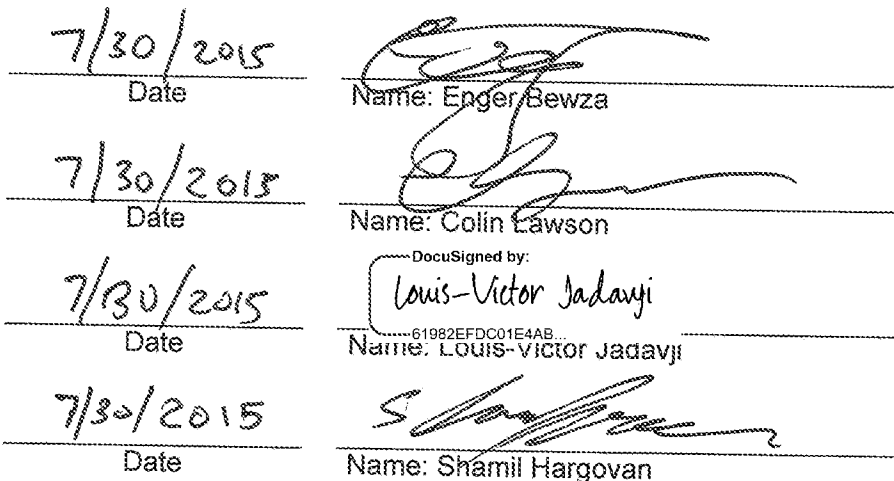 7/30/2015
Date Name: Enger Bewza
7/30/2015
Date Name: Colin Lawson
DocuSigned by:
7/30/2015 Louis-Victor Jadavji
61982EFDC01E4AB...
Date Name: Louis-Victor Jadavji
7/30/2015
Date Name: Shamil Hargovan